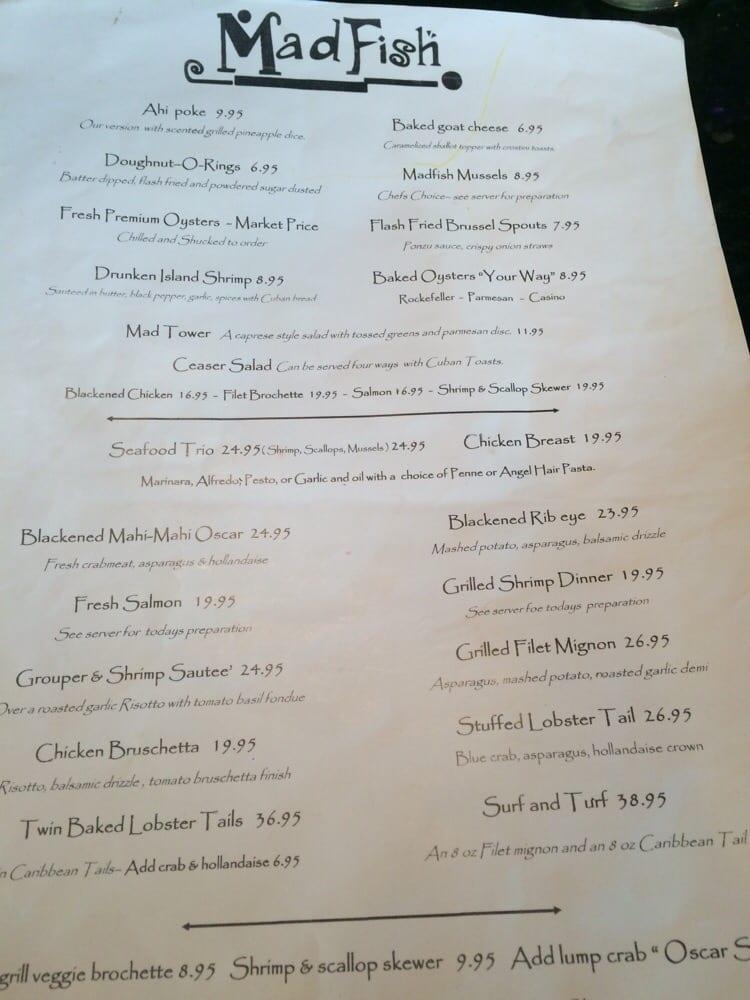 MadFish
Ahi poke 9.95
Our version with scented grilled pineapple dice.
Baked goat cheese 6.95
Caramelized shallot topper with crostini toasts.
Doughnut-O-Rings 6.95
Batter dipped, flash fried and powdered sugar dusted
Madfish Mussels 8.95
Chefs Choice- see server for preparation
Fresh Premium Oysters - Market Price
Chilled and Shucked to order
Flash Fried Brussel Spouts 7.95
Ponzu sauce, crispy onion straws
Drunken Island Shrimp 8.95
Sauteed in butter, black pepper, garlic, spices with Cuban bread
Baked Oysters "Your Way" 8.95
Rockefeller - Parmesan - Casino
Mad Tower A caprese style salad with tossed greens and parmesan disc. 11.95
Ceaser Salad Can be served four ways with Cuban Toasts.
Blackened Chicken 16.95 - Filet Brochette 19.95 - Salmon 16.95 - Shrimp & Scallop Skewer 19.95
Seafood Trio 24.95 (Shrimp, Scallops, Mussels) 24.95 Chicken Breast 19.95
Marinara, Alfredo, Pesto, or Garlic and oil with a choice of Penne or Angel Hair Pasta.
Blackened Mahi-Mahi Oscar 24.95
Fresh crabmeat, asparagus & hollandaise
Blackened Rib eye 23.95
Mashed potato, asparagus, balsamic drizzle
Fresh Salmon 19.95
See server for todays preparation
Grilled Shrimp Dinner 19.95
See server foe todays preparation
Grouper & Shrimp Sautee' 24.95
Over a roasted garlic Risotto with tomato basil fondue
Grilled Filet Mignon 26.95
Asparagus, mashed potato, roasted garlic demi
Chicken Bruschetta 19.95
Risotto, balsamic drizzle, tomato bruschetta finish
Stuffed Lobster Tail 26.95
Blue crab, asparagus, hollandaise crown
Twin Baked Lobster Tails 36.95
Caribbean Tails- Add crab & hollandaise 6.95
Surf and Turf 38.95
An 8 oz Filet mignon and an 8 oz Caribbean Tail
grill veggie brochette 8.95 Shrimp & scallop skewer 9.95 Add lump crab " Oscar S